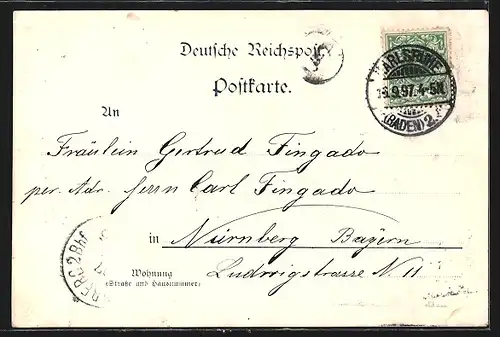 Deutsche Reichspost
Postkarte.
KARLSRUHE
9.97.4-5N.
(BADEN) 2.
An
Fräulein Gertrud Fingado
per. Adr. Herrn Carl Fingado
in Nürnberg Bayern
Wohnung
(Straße und Hausnummer)
Ludwigstrasse N. 11
BERG 2 Bhf